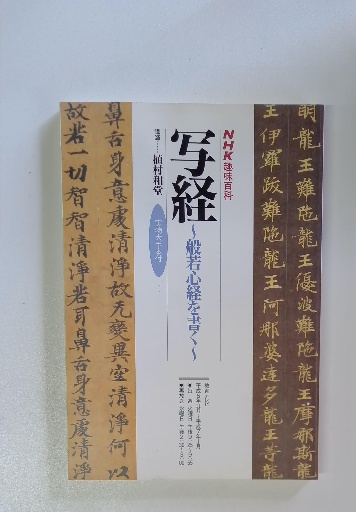 明龍王難陁龍王優波難陁龍王摩那斯龍
王伊羅跋難陁龍王阿那婆達多龍王等龍
NHK趣味百科
写経
〜般若心経を書く〜
講師……植村和堂
鼻舌身意處清淨故无變異空清淨何以
故若一切智智清淨若耳鼻舌身意處清淨